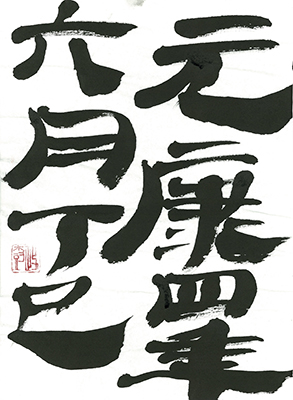 元康四年
六月丁巳